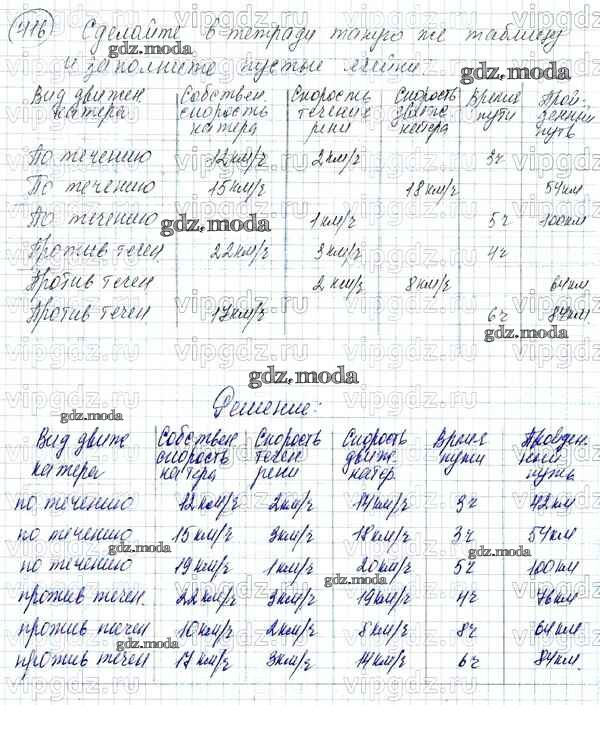 416 Сделайте в тетради такую же таблицу
gdz.moda
и заполните пустые ячейки:
gdz.moda
Вид движен. катера | Собствен. скорость катера | Скорость течения реки | Скорость движ. катера | Время пути | Прой- денный путь
По течению 12 км/ч 2 км/ч 3ч
По течению 15 км/ч 18 км/ч 54 км
По течению 1 км/ч 5ч 100 км
gdz.moda
Против течен 22 км/ч 3 км/ч 4ч
Против течен 2 км/ч 8 км/ч 64 км
Против течен 17 км/ч 6ч 84 км.
gdz.moda
gdz.moda
Решение:
gdz.moda
Вид движ. катера | Собствен. скорость катера | Скорость течен. реки | Скорость движ. катер. | Время пути | Пройден. ный путь
по течению 12 км/ч 2 км/ч 14 км/ч 3ч 42 км
по течению 15 км/ч 3 км/ч 18 км/ч 3ч 54 км
gdz.moda
по течению 19 км/ч 1 км/ч 20 км/ч 5ч 100 км
gdz.moda
против течен. 22 км/ч 3 км/ч 19 км/ч 4ч 76 км
против течен 10 км/ч 2 км/ч 8 км/ч 8ч 64 км
gdz.moda
против течен 17 км/ч 3 км/ч 14 км/ч 6ч 84 км.
vipgdz.ru